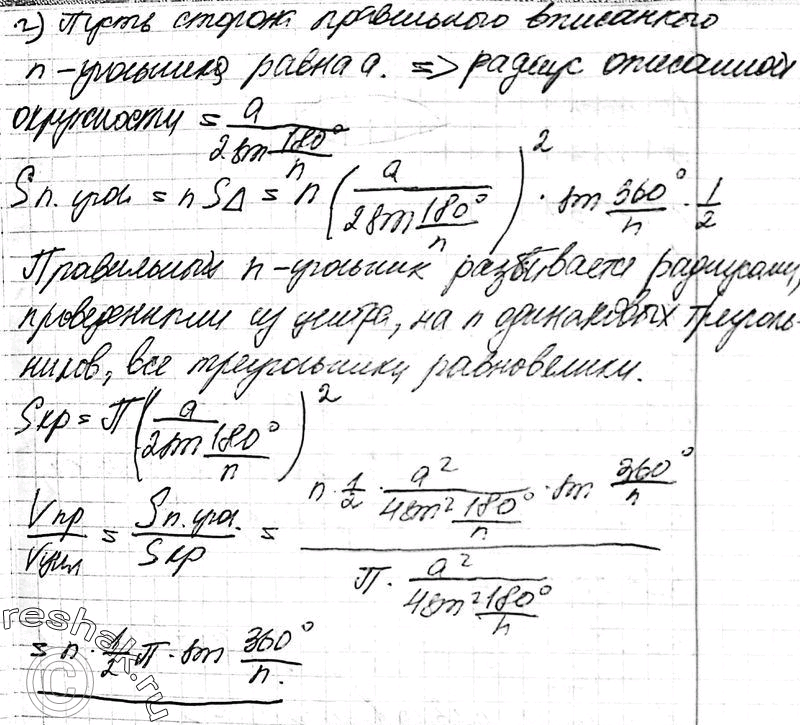 г) Пусть сторона правильного вписанного
n-угольника равна a. => радиус описанной
окружности = a / (2 sin 180°/n)
Sп.угол = n S△ = n (a / (2 sin 180°/n))² · sin 360°/n · 1/2
Правильный n-угольник разбивается радиусами,
проведенными из центра, на n одинаковых треуголь-
ников, все треугольники равновелики.
Sкр = П (a / (2 sin 180°/n))²
Vпр / Vцил = Sп.угол. / Sкр = (n · 1/2 · a² / (4 sin² 180°/n) · sin 360°/n) / (П · a² / (4 sin² 180°/n))
= n · 1/2 П · sin 360°/n.
reshak.ru